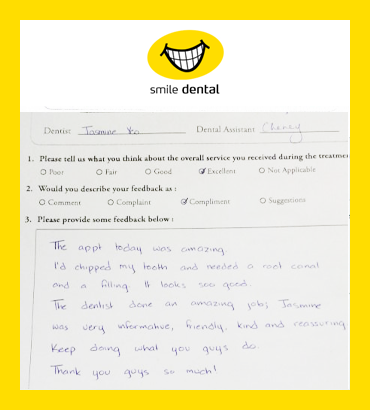 smile dental
Dentist Jasmine Dental Assistant
1. Please tell us what you think about the overall service you received during the treatmen
Poor Fair Good Excellent Not Applicable
2. Would you describe your feedback as :
Comment Complaint Compliment Suggestions
3. Please provide some feedback below :
The appt today was amazing.
I'd chipped my teeth and needed a root canal
and a filling. It looks soo good.
The dentist done an amazing job; Jasmine
was very informative, friendly, kind and reassuring.
Keep doing what you guys do.
Thank you guys so much!